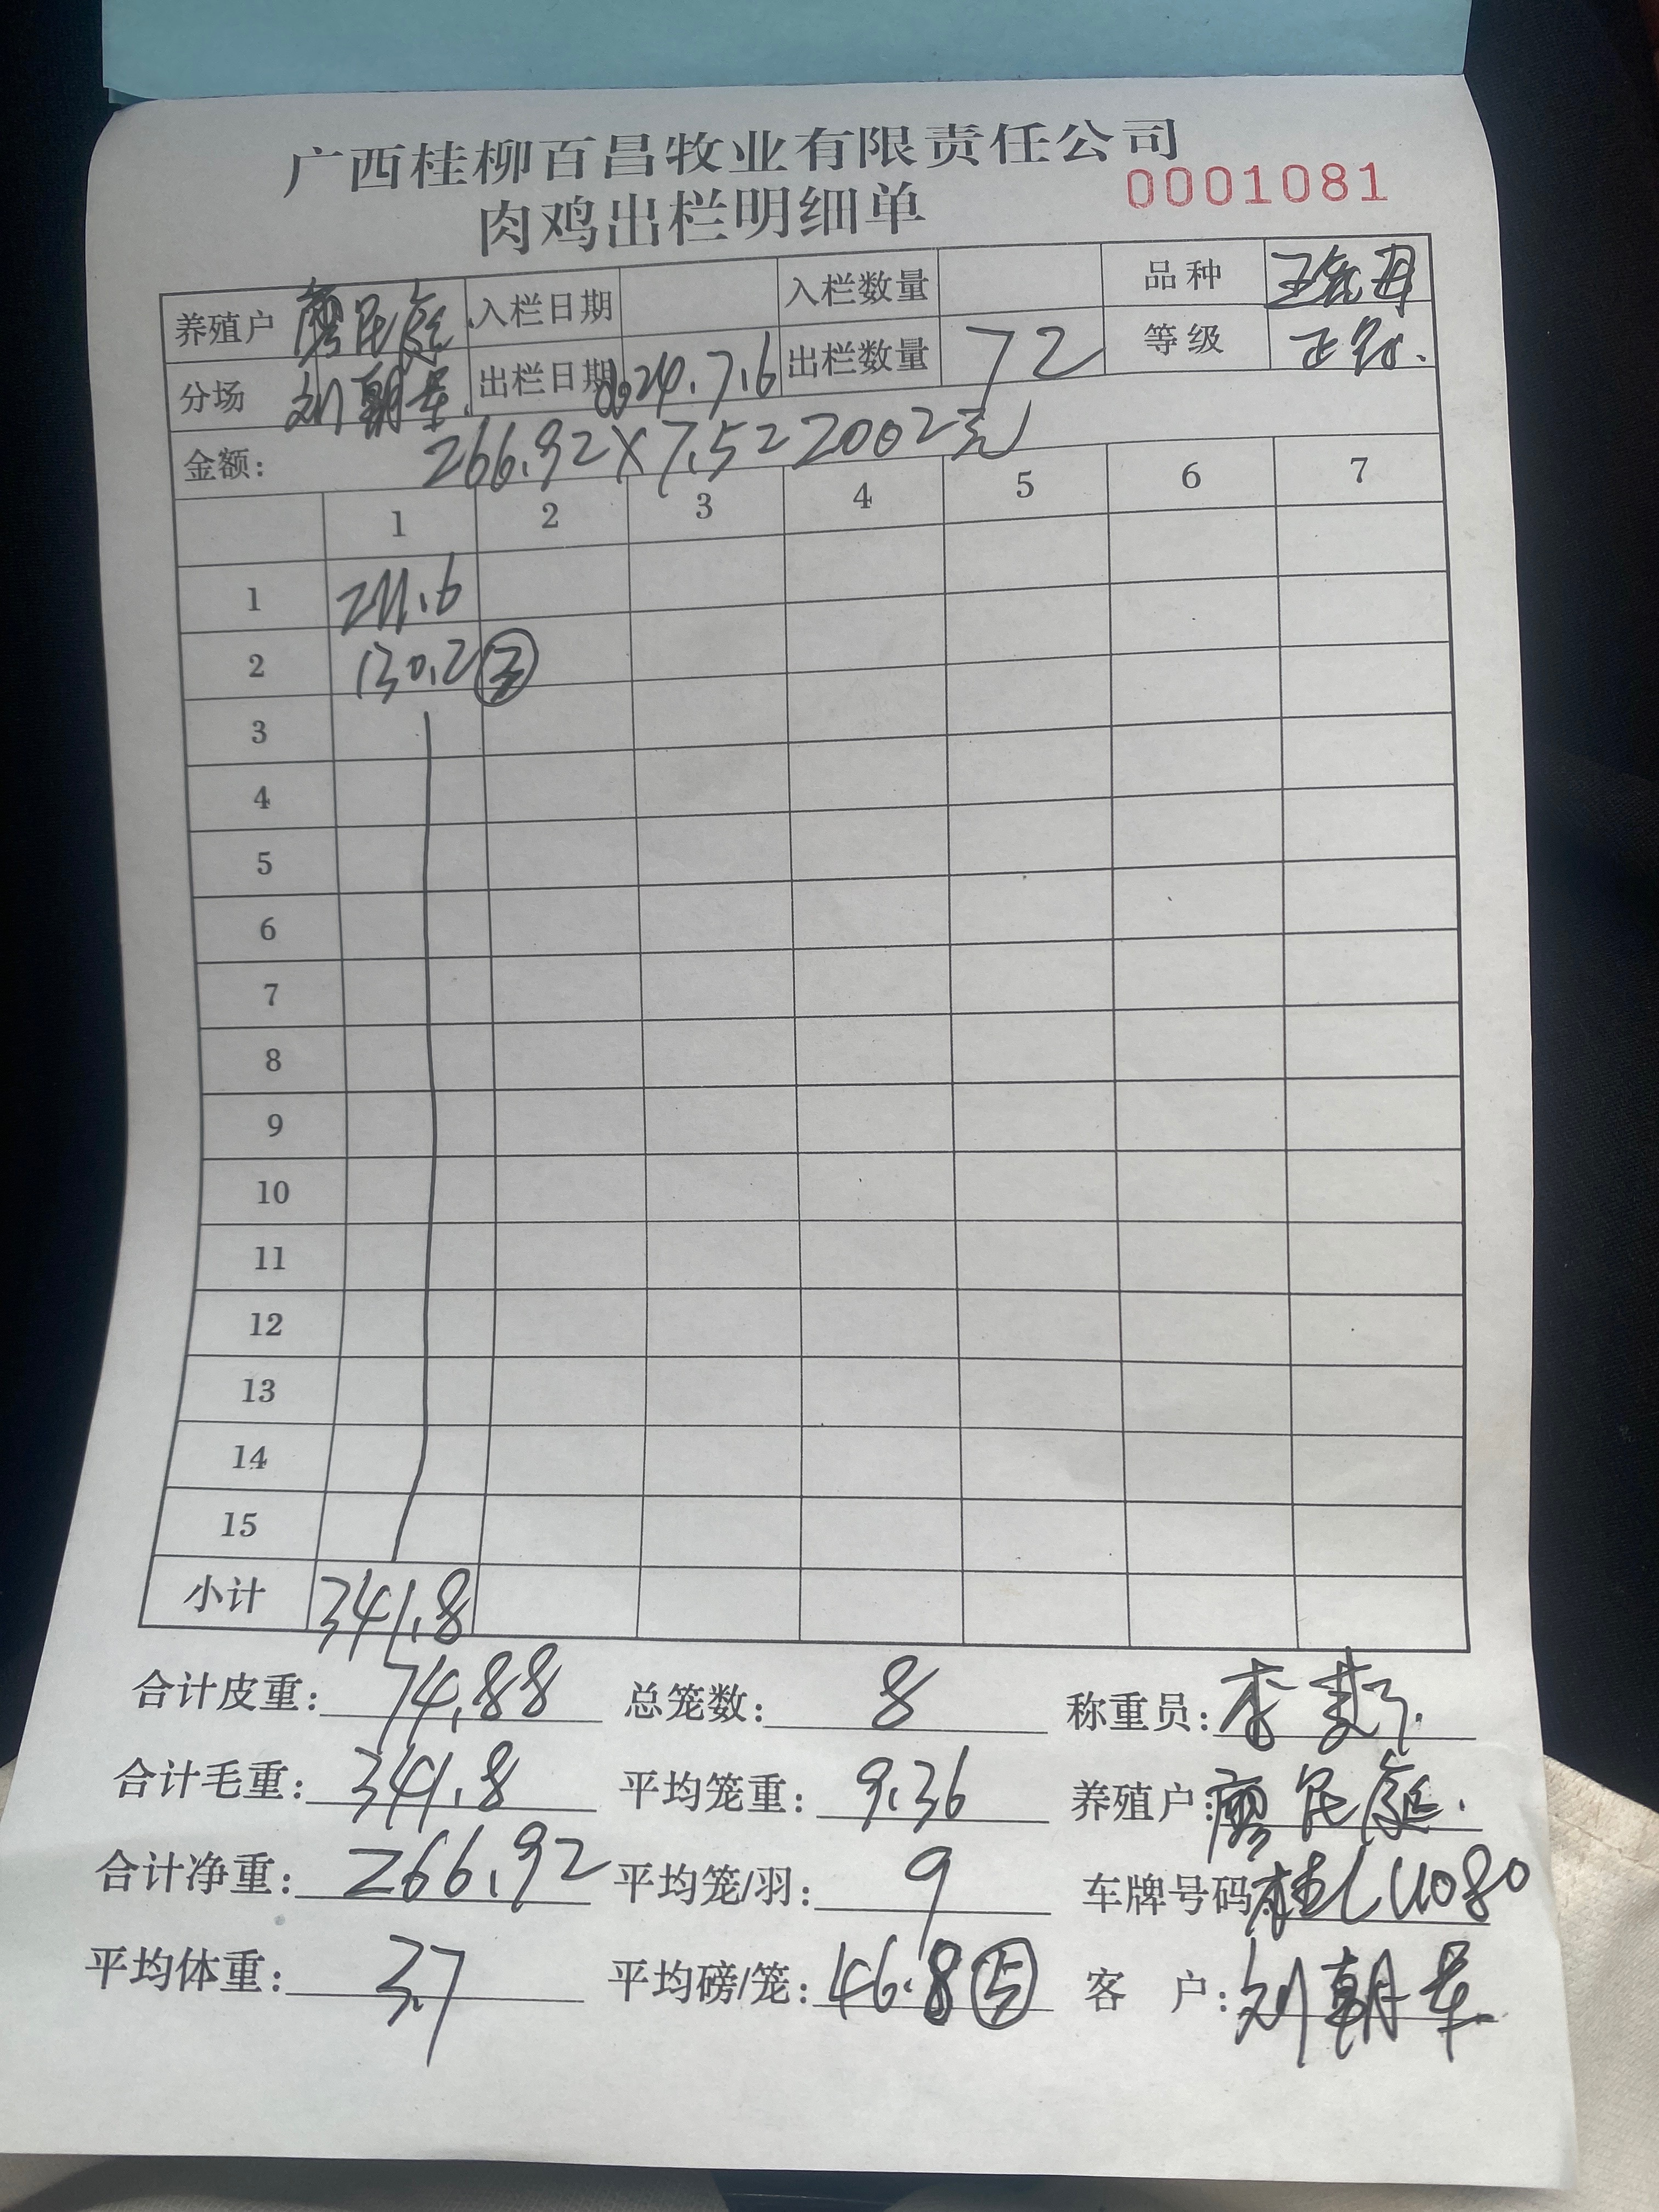 广西桂柳百昌牧业有限责任公司
肉鸡出栏明细单 0001081
养殖户 廖民庭 入栏日期 入栏数量 品种
分场 刘朝 出栏日期 2024.7.6 出栏数量 72 等级 正
金额: 266.92×7.5=2002元
1 2 3 4 5 6 7
1 211.6
2 130.2 ③
3
4
5
6
7
8
9
10
11
12
13
14
15
小计 341.8
合计皮重: 74.88 总笼数: 8 称重员: 李
合计毛重: 341.8 平均笼重: 9.36 养殖户: 廖民庭
合计净重: 266.92 平均笼/羽: 9 车牌号码 桂
平均体重: 3.7 平均磅/笼: 46.8 ⑤ 客户: 刘朝